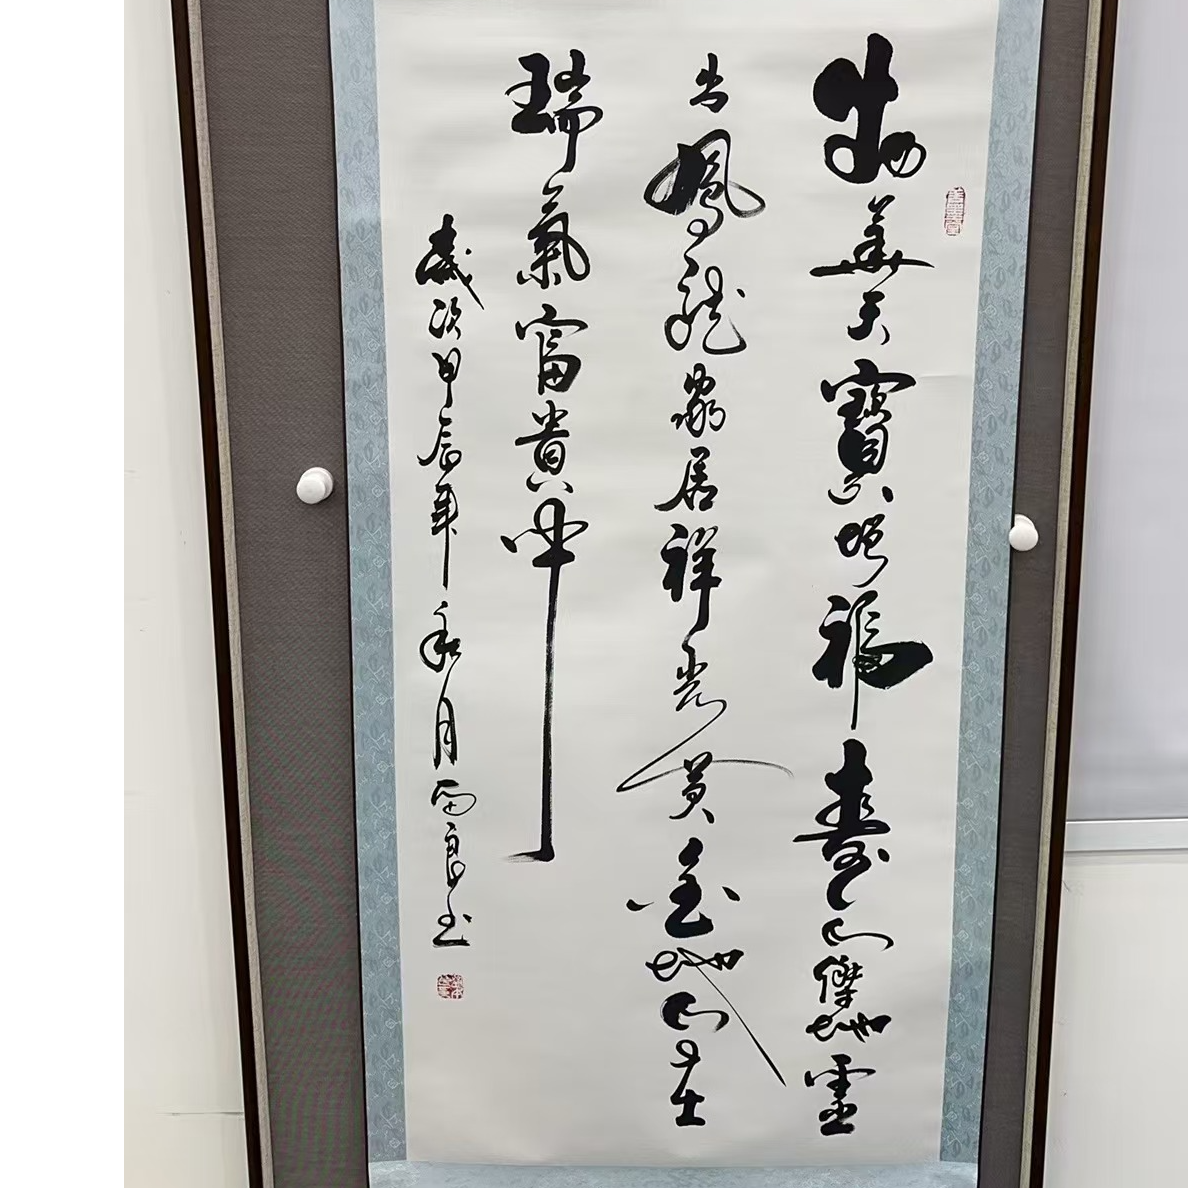 物華天寶增福壽人傑地靈
出鳳龍家居祥光黃金地人在
瑞氣富貴中
歲次甲辰年和月雷良书